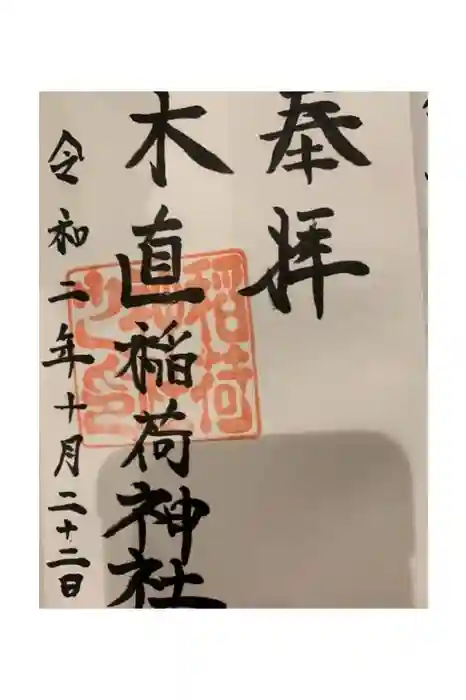 奉拝
木直稲荷神社
令和二年十月二十二日